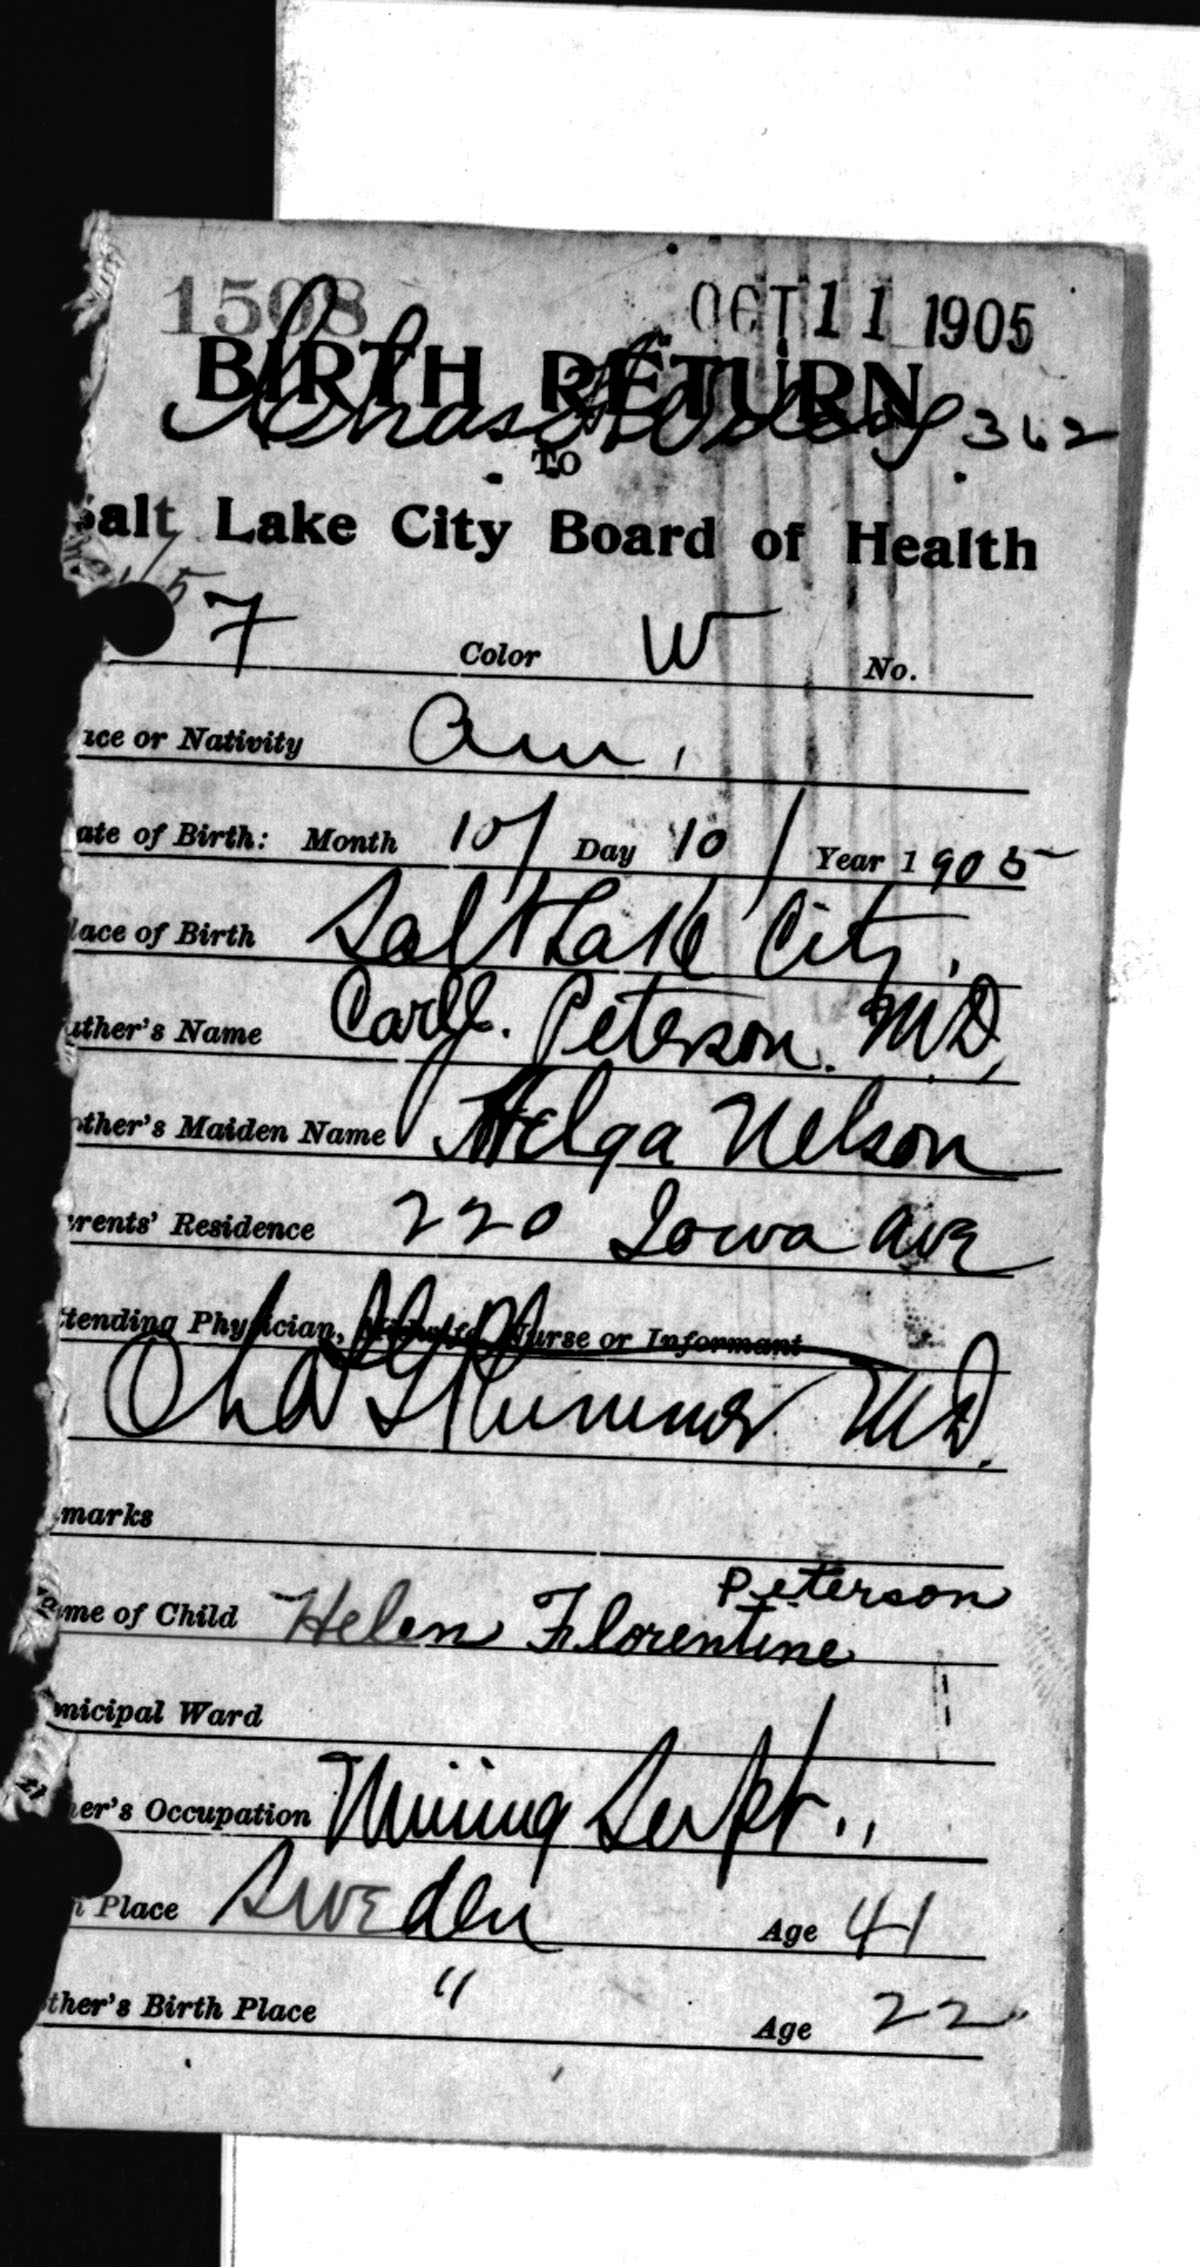 1508 OCT 11 1905
BIRTH RETURN
Chas 362
TO
Salt Lake City Board of Health
F Color W No.
ace or Nativity Am.
ate of Birth: Month 10/ Day 10 / Year 1905
lace of Birth Salt Lake City.
ather's Name Carl J. Peterson. M.D.
other's Maiden Name Helga Nelson
rents' Residence 220 Iowa Ave
ttending Physician, Midwife, Nurse or Informant
Chas G Plummer M.D.
marks
Peterson
ame of Child Helen Florentine
nicipal Ward
her's Occupation Mining Supt.
h Place Sweden Age 41
ther's Birth Place " Age 22